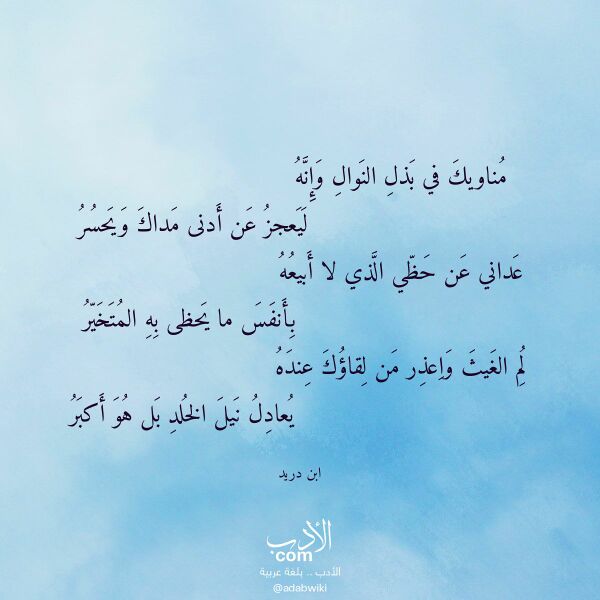 مُناويكَ في بَذلِ النَوالِ وَإِنَّهُ
لَيَعجزُ عَن أَدنى مَداكَ وَيَحسُرُ
عَداني عَن حَظّي الَّذي لا أَبيعُهُ
بِأَنفَسَ ما يَحظى بِهِ المُتَخَيّرُ
لُمِ الغَيثَ وَاِعذِر مَن لِقاؤُكَ عِندَهُ
يُعادِلُ نَيلَ الخُلدِ بَل هُوَ أَكبَرُ
ابن دريد
الأدب
com
الأدب .. بلغة عربية
@adabwiki